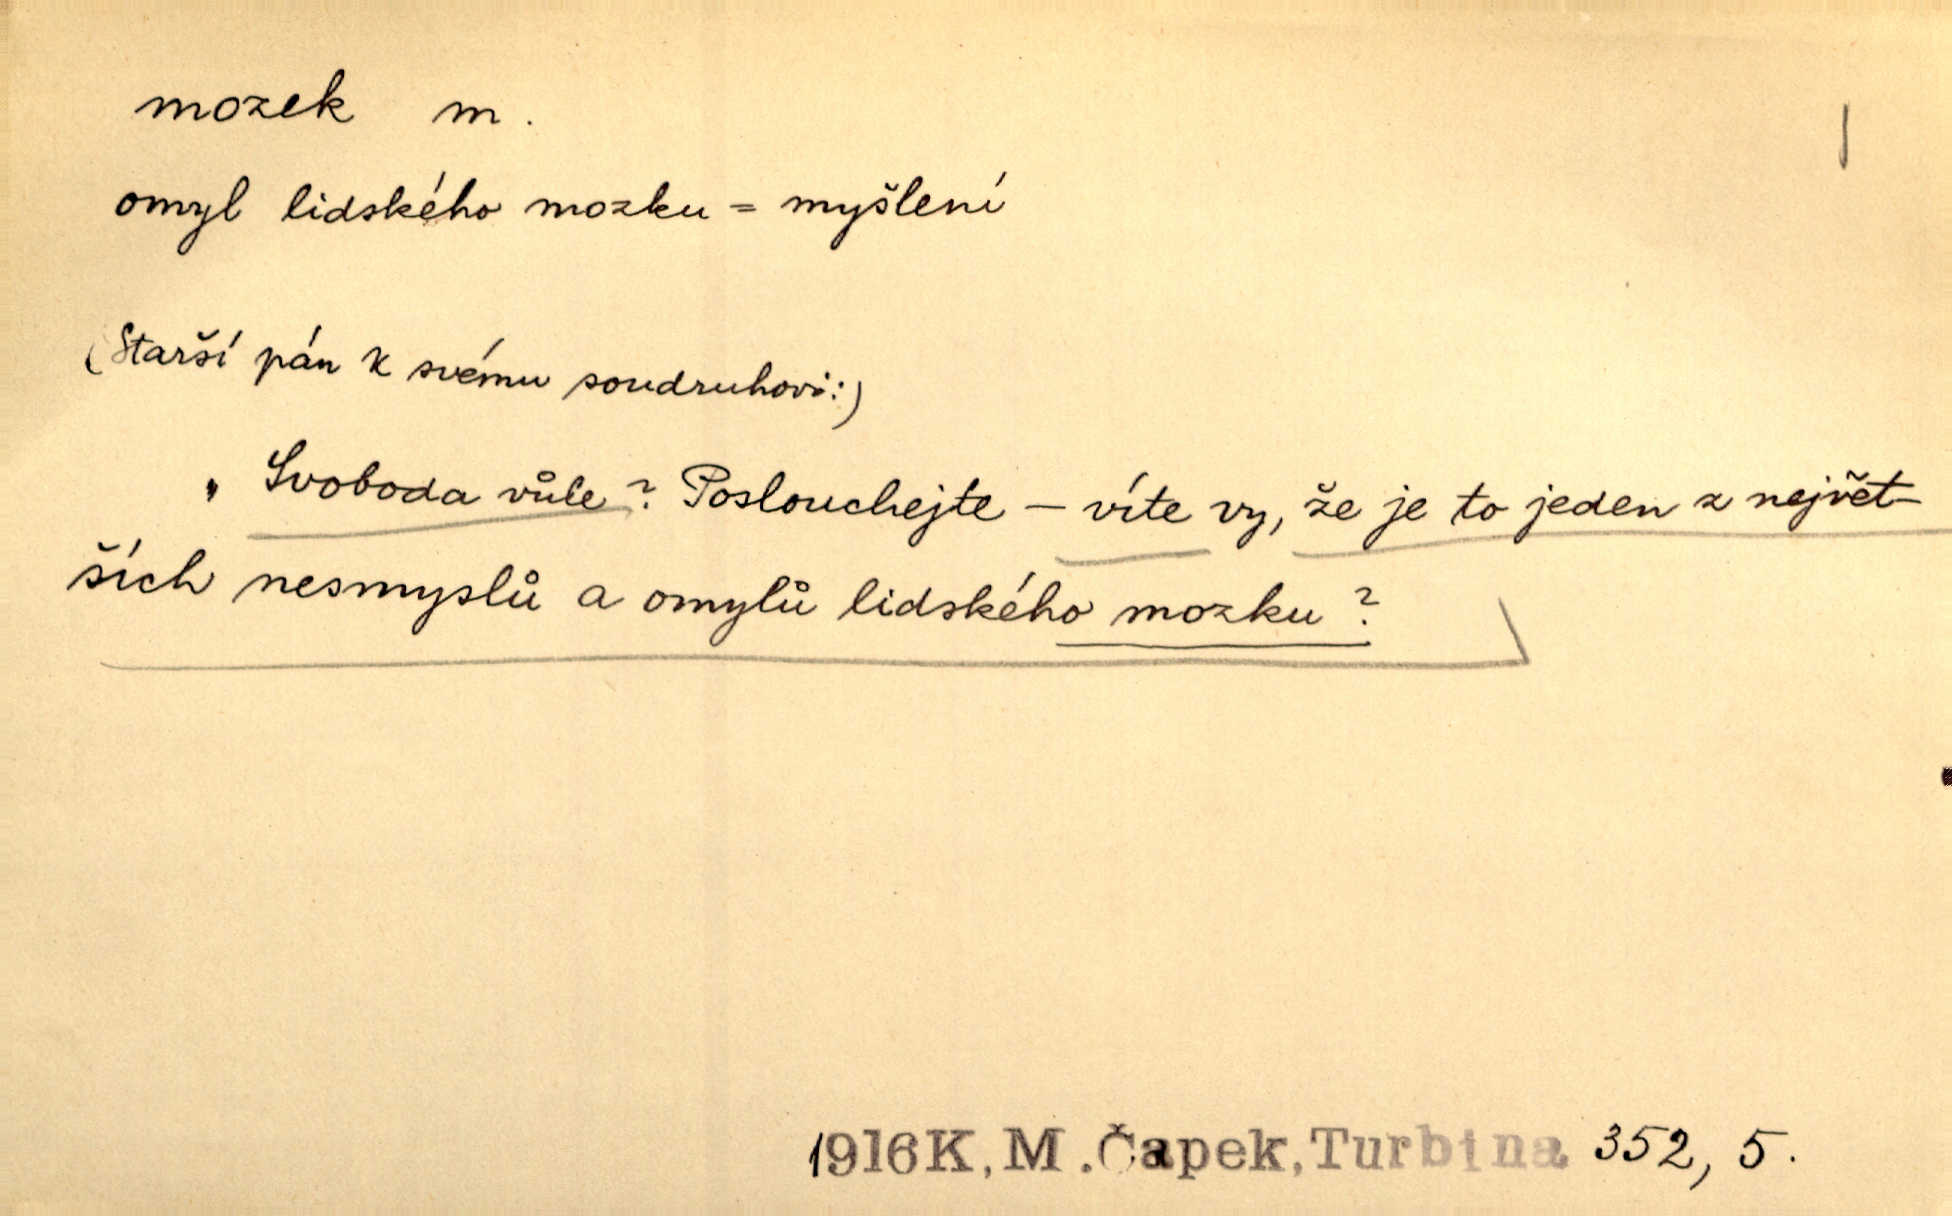 mozek m.
omyl lidského mozku = myšlení
(Starší pán k svému soudruhovi:)
„Svoboda vůle? Poslouchejte – víte vy, že je to jeden z největ-
ších nesmyslů a omylů lidského mozku?
1916 K,M.Čapek,Turbina 352, 5.